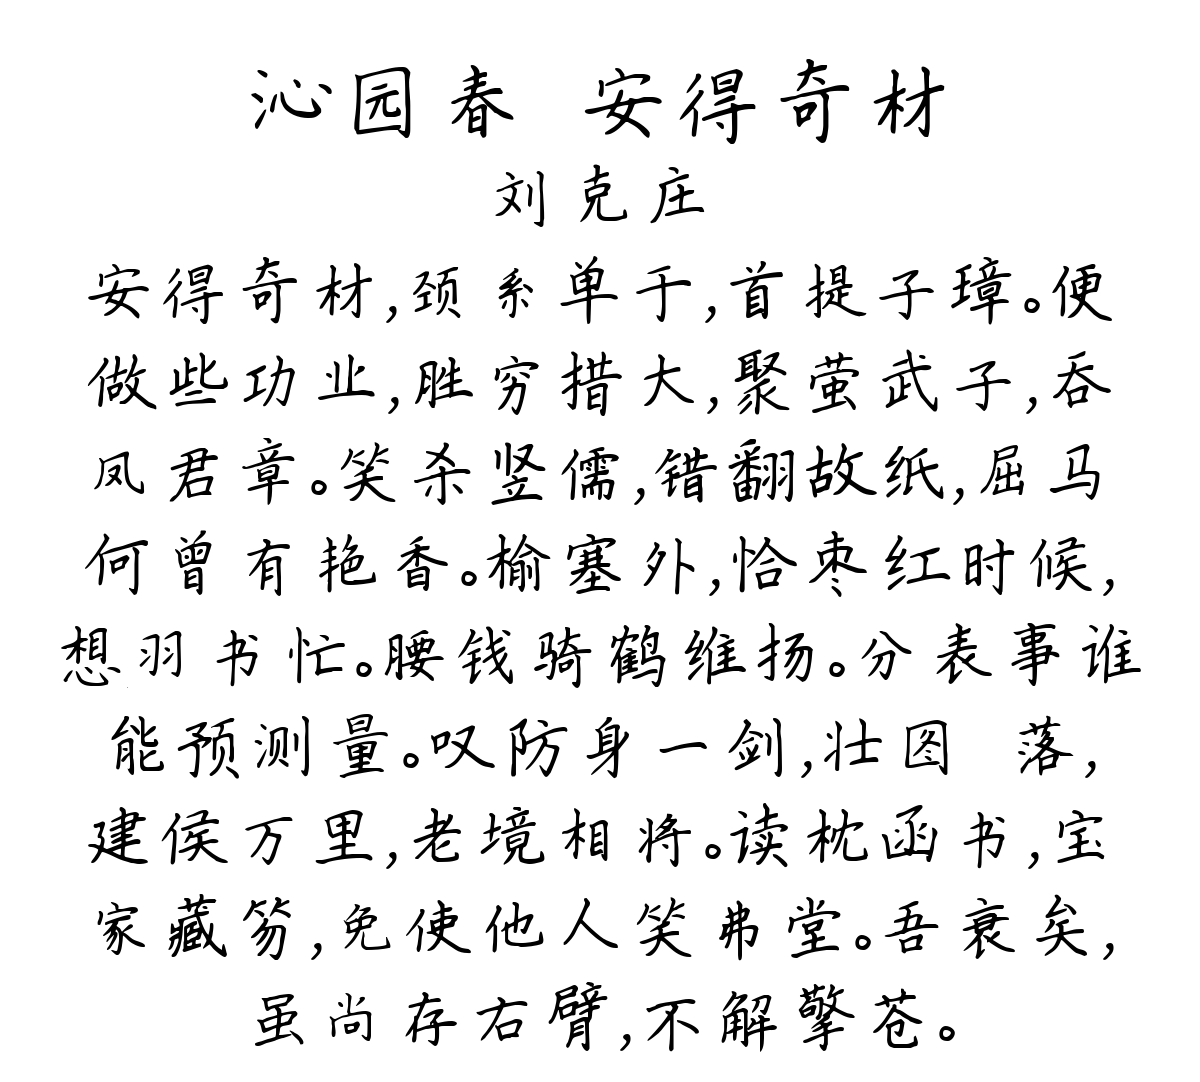 沁园春 安得奇材
刘克庄
安得奇材,颈系单于,首提子璋。便
做些功业,胜穷措大,聚萤武子,吞
凤君章。笑杀竖儒,错翻故纸,屈马
何曾有艳香。榆塞外,恰枣红时候,
想羽书忙。腰钱骑鹤维扬。分表事谁
能预测量。叹防身一剑,壮图 落,
建侯万里,老境相将。读枕函书,宝
家藏笏,免使他人笑弗堂。吾衰矣,
虽尚存右臂,不解擎苍。